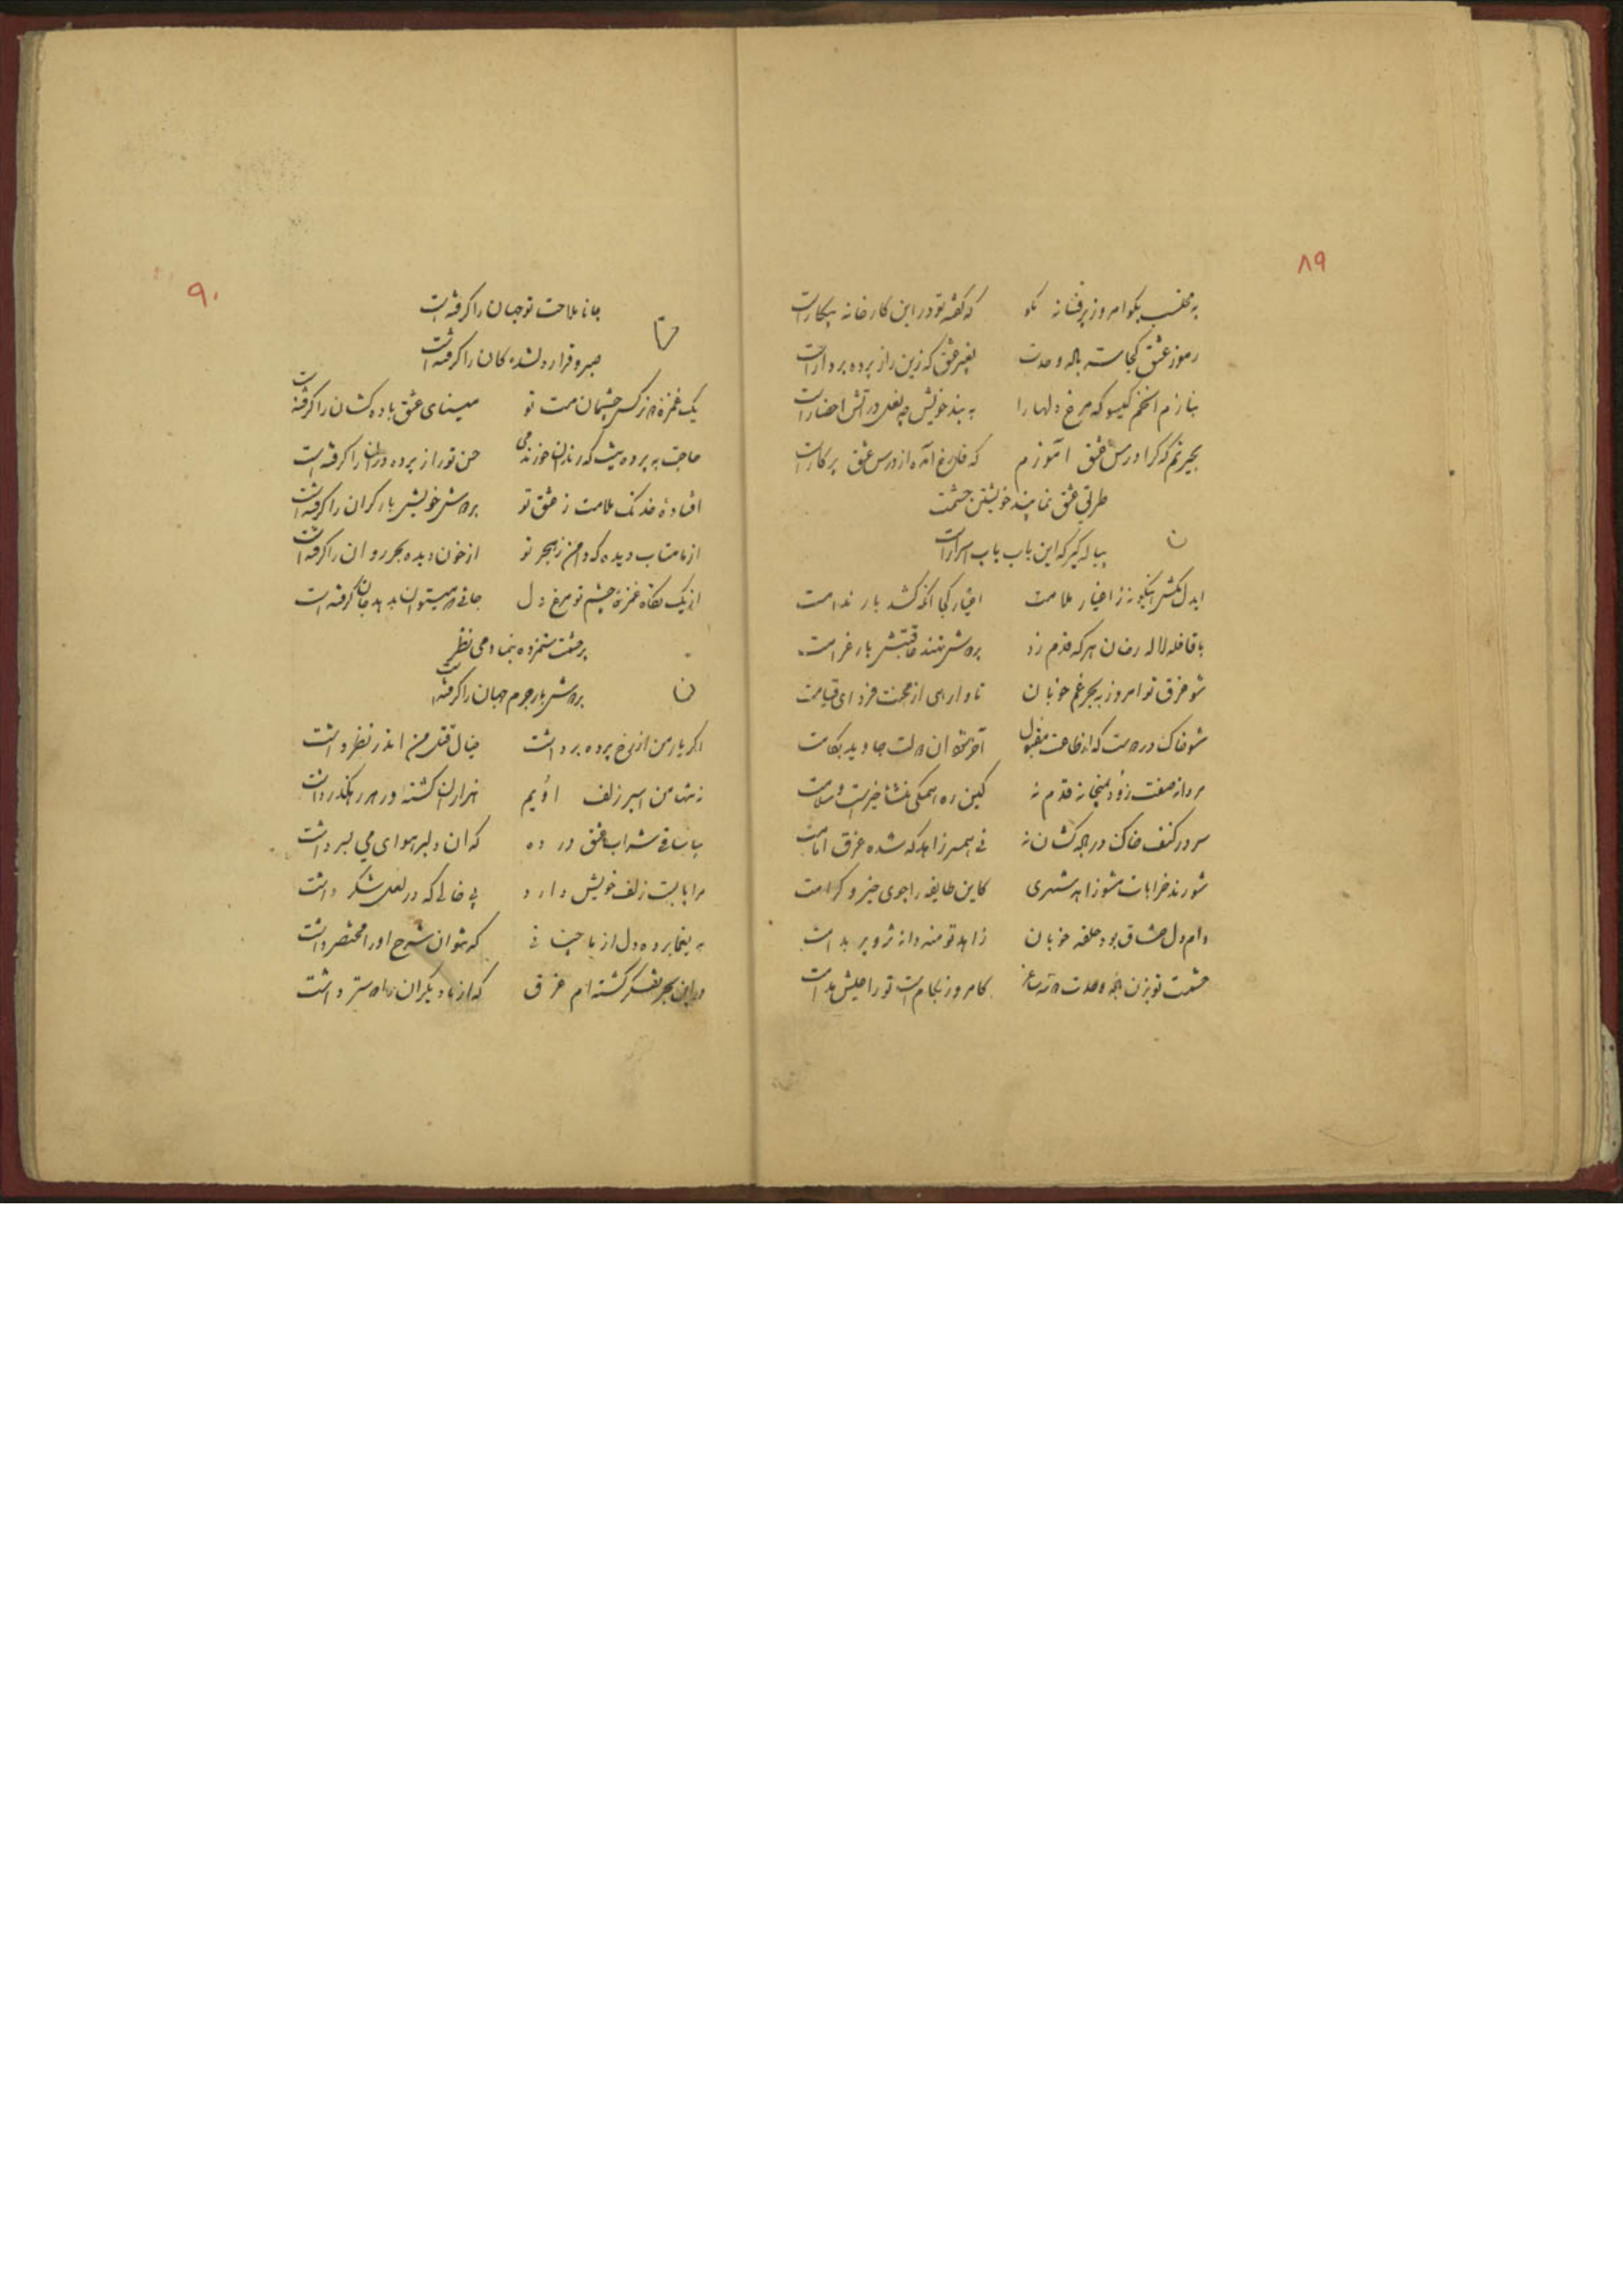 ۸۹
به محتسب بگو امروز پر فسانه مگو که گفته تو در این کارخانه بیکار است
رموز عشق کجا مست باله وحدت بغیر عشق که زین راز پرده بردار است
بنازم آن خم گیسو که مرغ دلها را به بند خویش چه لعل در آتش احضار است
بحیرتم که کرا درس عشق آموزم که فارغ آمده از درس عشق پرکار است
طریق عشق نماید خویشتن حشمت
پیاله گیر که این باب باب اسرار است
ن
ایدل مکش اینگونه ز اغیار ملامت اغیار کجا آنکه کشد بار ندامت
با قافله لاله رخان هر که قدم زد بر دوش نهند عاقبتش بار غرامت
شو غرق تو امروز به بحر غم خوبان تا وارهی از محنت فردای قیامت
شو خاک در دوست که از طاعت مقبول آخر بتو آن دولت جاوید بکامت
مردانه صفت زود بمیخانه قدم نه کین ره همگی منشأ خیر است و سلامت
سر در کنف خاک در میکشان نه نی همسر زاهد که شده غرق امامت
شو رند خرابات مشو زاهد شهری کاین طایفه را جوی خیر و کرامت
دام دل عشاق بود حلقه خوبان زاهد تو منه دانه تزویر بدامت
حشمت تو بزن باده وحدت کامروز بجام است تو را عیش مدامت
۹۰
جانا ملاحت تو جهان را گرفته است
صبر و قرار دلشدگان را گرفته است
یک غمزه از نرگس چشمان مست تو مینای عشق باده کشان را گرفته است
حاجت به پرده نیست که رندان خورند می حسن تو راز پرده دران را گرفته است
افتاده خدنگ ملامت ز عشق تو بر دوش خویش بار گران را گرفته است
از ما متاب دیده که دامن ز هجر تو از خون دیده بحر روان را گرفته است
از یک نگاه غمزه چشم تو مرغ دل جانی که میتوان بدهد جان گرفته است
بر حشمت ستمزده بنما دمی نظر
بر دوش بار جرم جهان را گرفته است
ن
اگر یار من از رخ پرده برداشت خیال قتل من اندر نظر داشت
نه تنها من اسیر زلف اویم هزاران کشته در هر رهگذر داشت
بیا ساقی شراب عشق در ده که آن دلبر هوای می بسر داشت
مرا پابست زلف خویش دارد پی خالی که در لعل شکر داشت
به یغما برده دل از ما چنانی که نتوان شرح او را مختصر داشت
در این بحر تفکر گشته‌ام غرق که از ما دیگران را دوستتر داشت